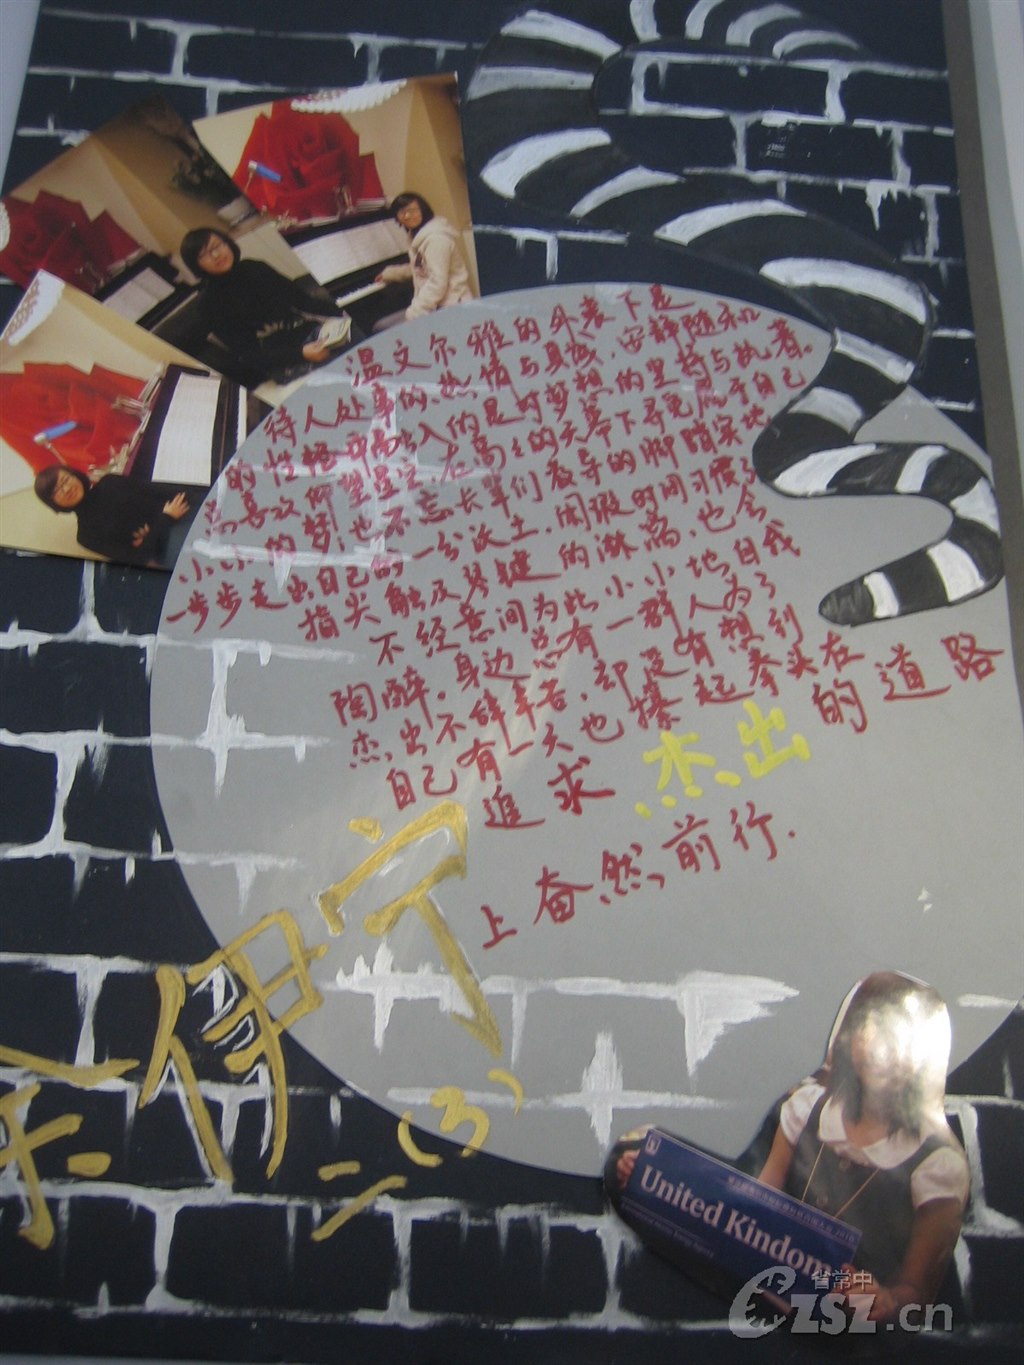 温文尔雅的外表下是
待人处事的热情与真诚,安静随和
的性格中融入的是对梦想的坚持与执着。
点喜欢仰望星空,在高高的天幕下寻觅属于自己
小小的梦!也不忘长辈们教导的脚踏实地
一步步走出自己的一份沃土.闲暇时间习惯了
指尖触及琴键的淋漓,也会
不经意间为此小小地自我
陶醉.身边总有一群人为了
杰出不辞辛苦,却没有想到
自己有一天也攥起拳头在
追求杰出的道路
上奋然前行.
伊宁
二(3)
United Kindom
省常中
CZSZ.cn